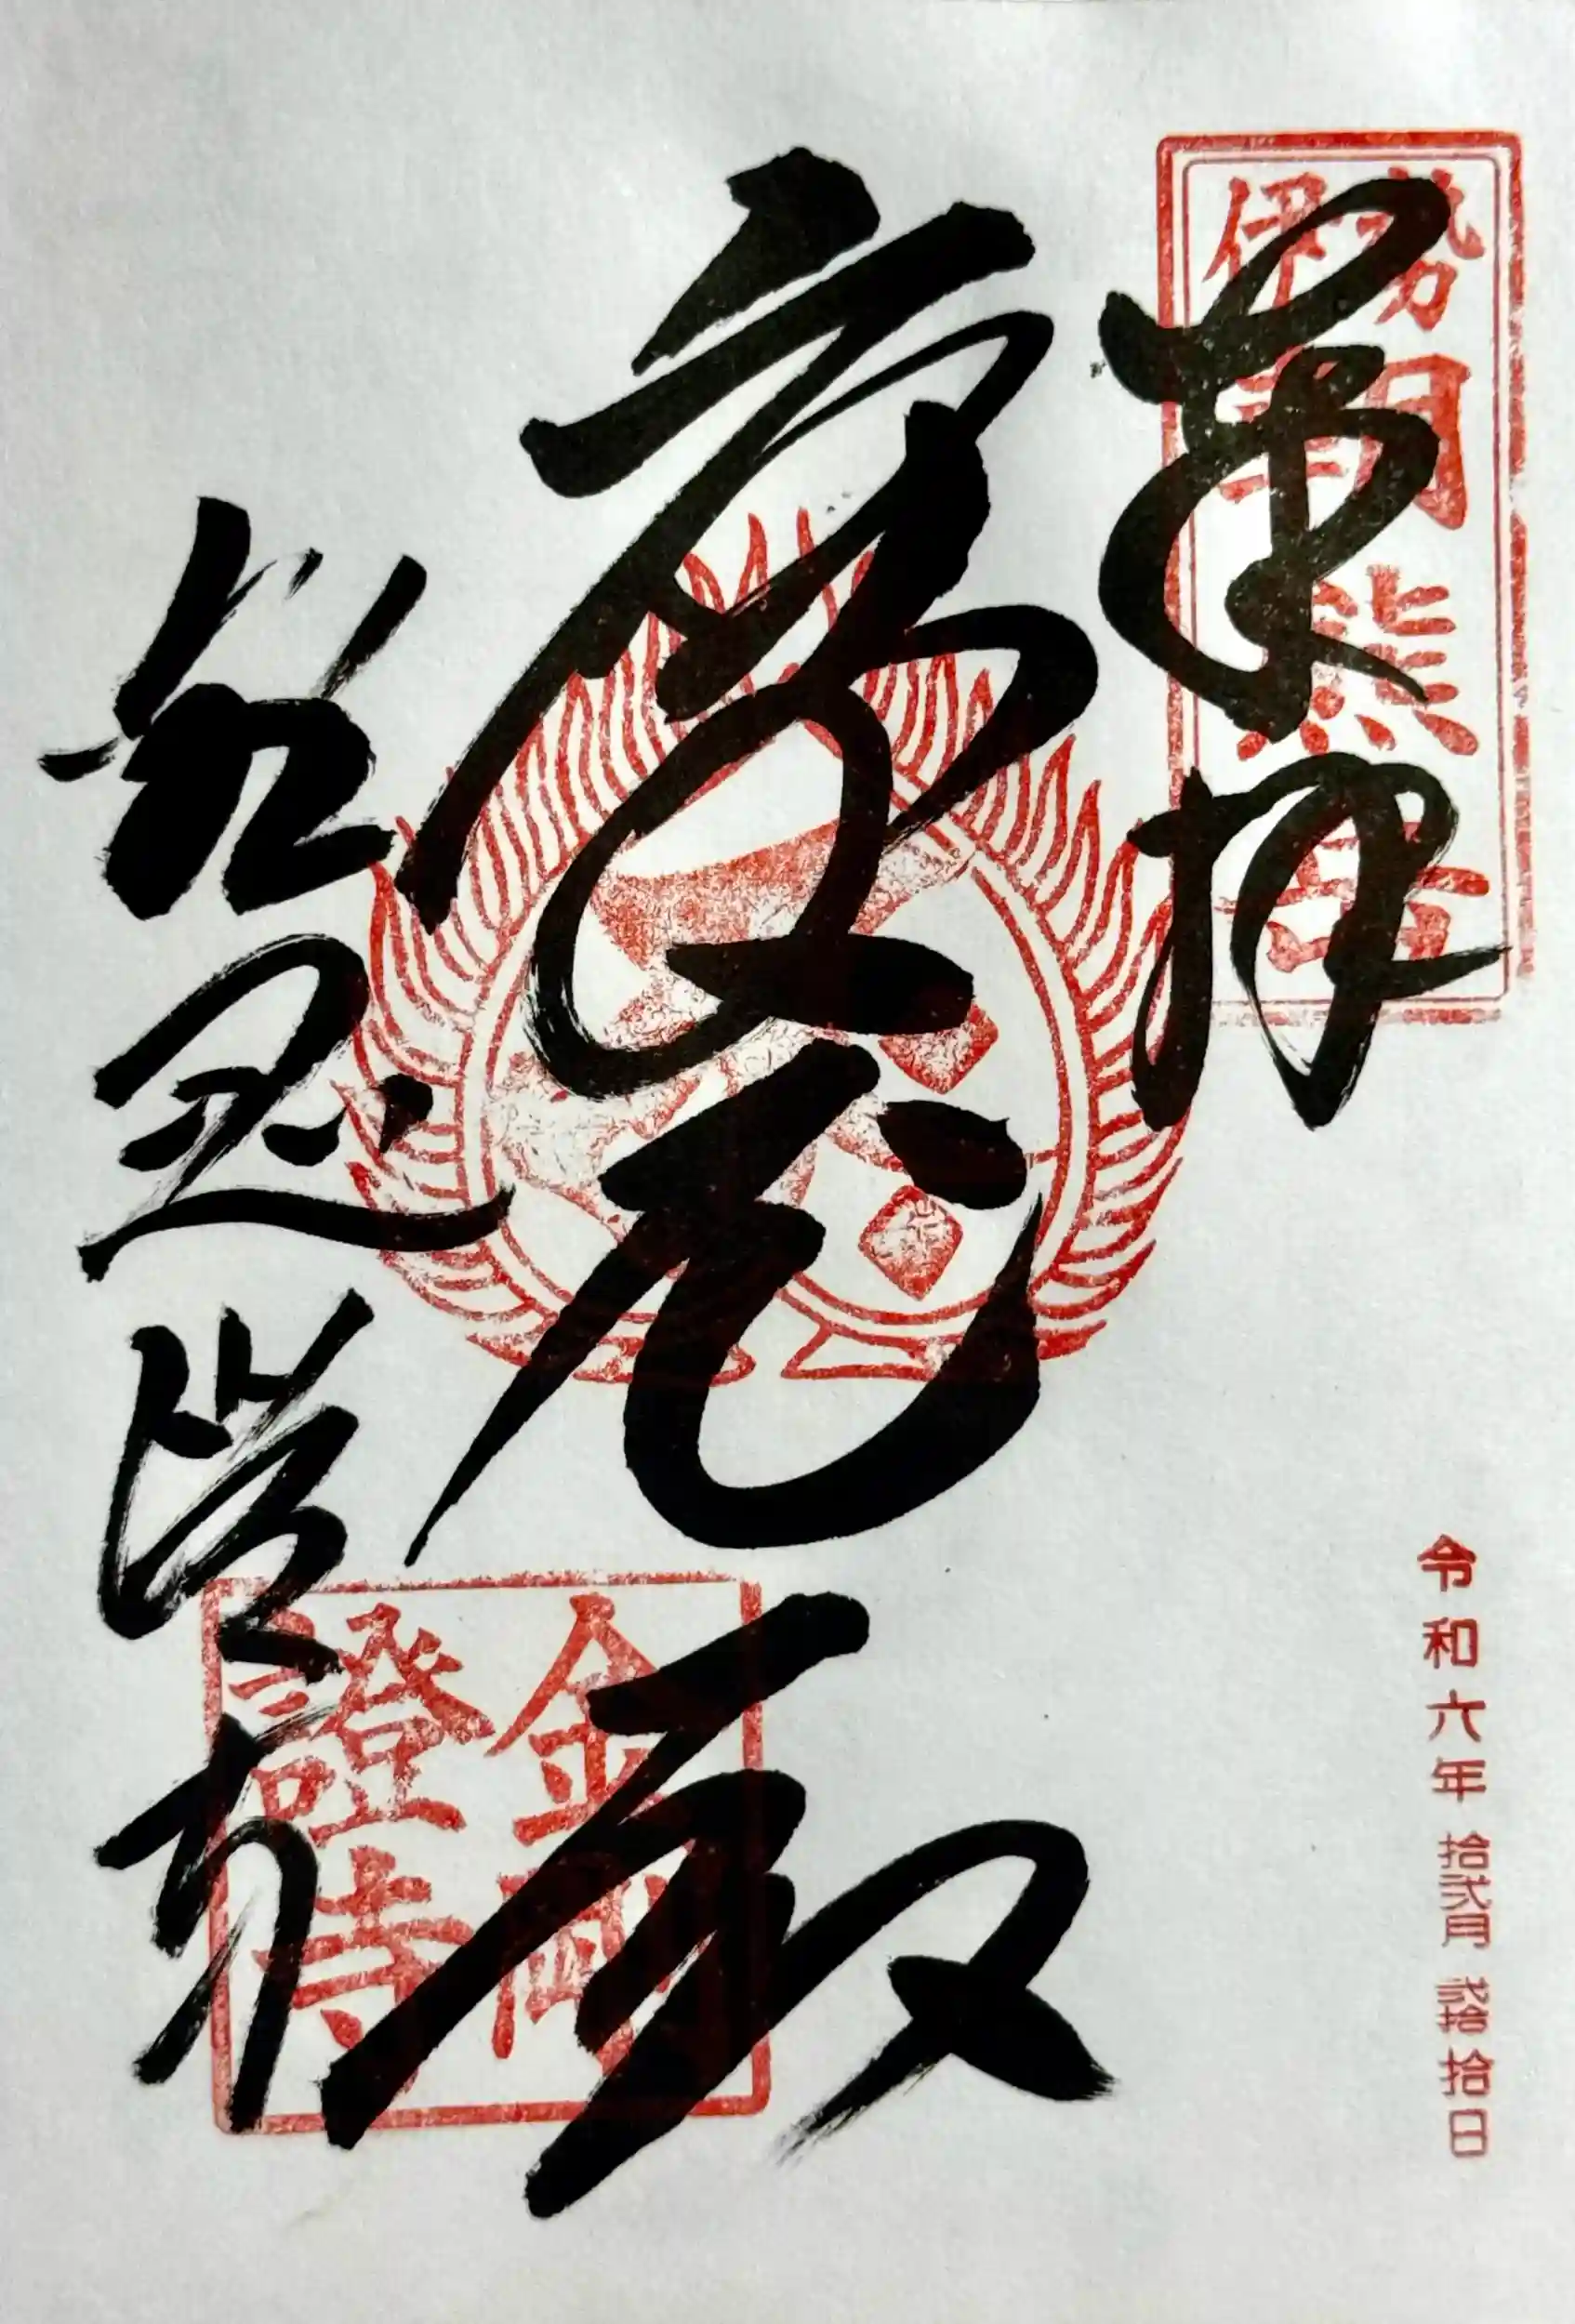 奉拝
伊勢
朝熊岳
摩尼殿
金剛
證寺
令和六年拾弐月弐拾拾日